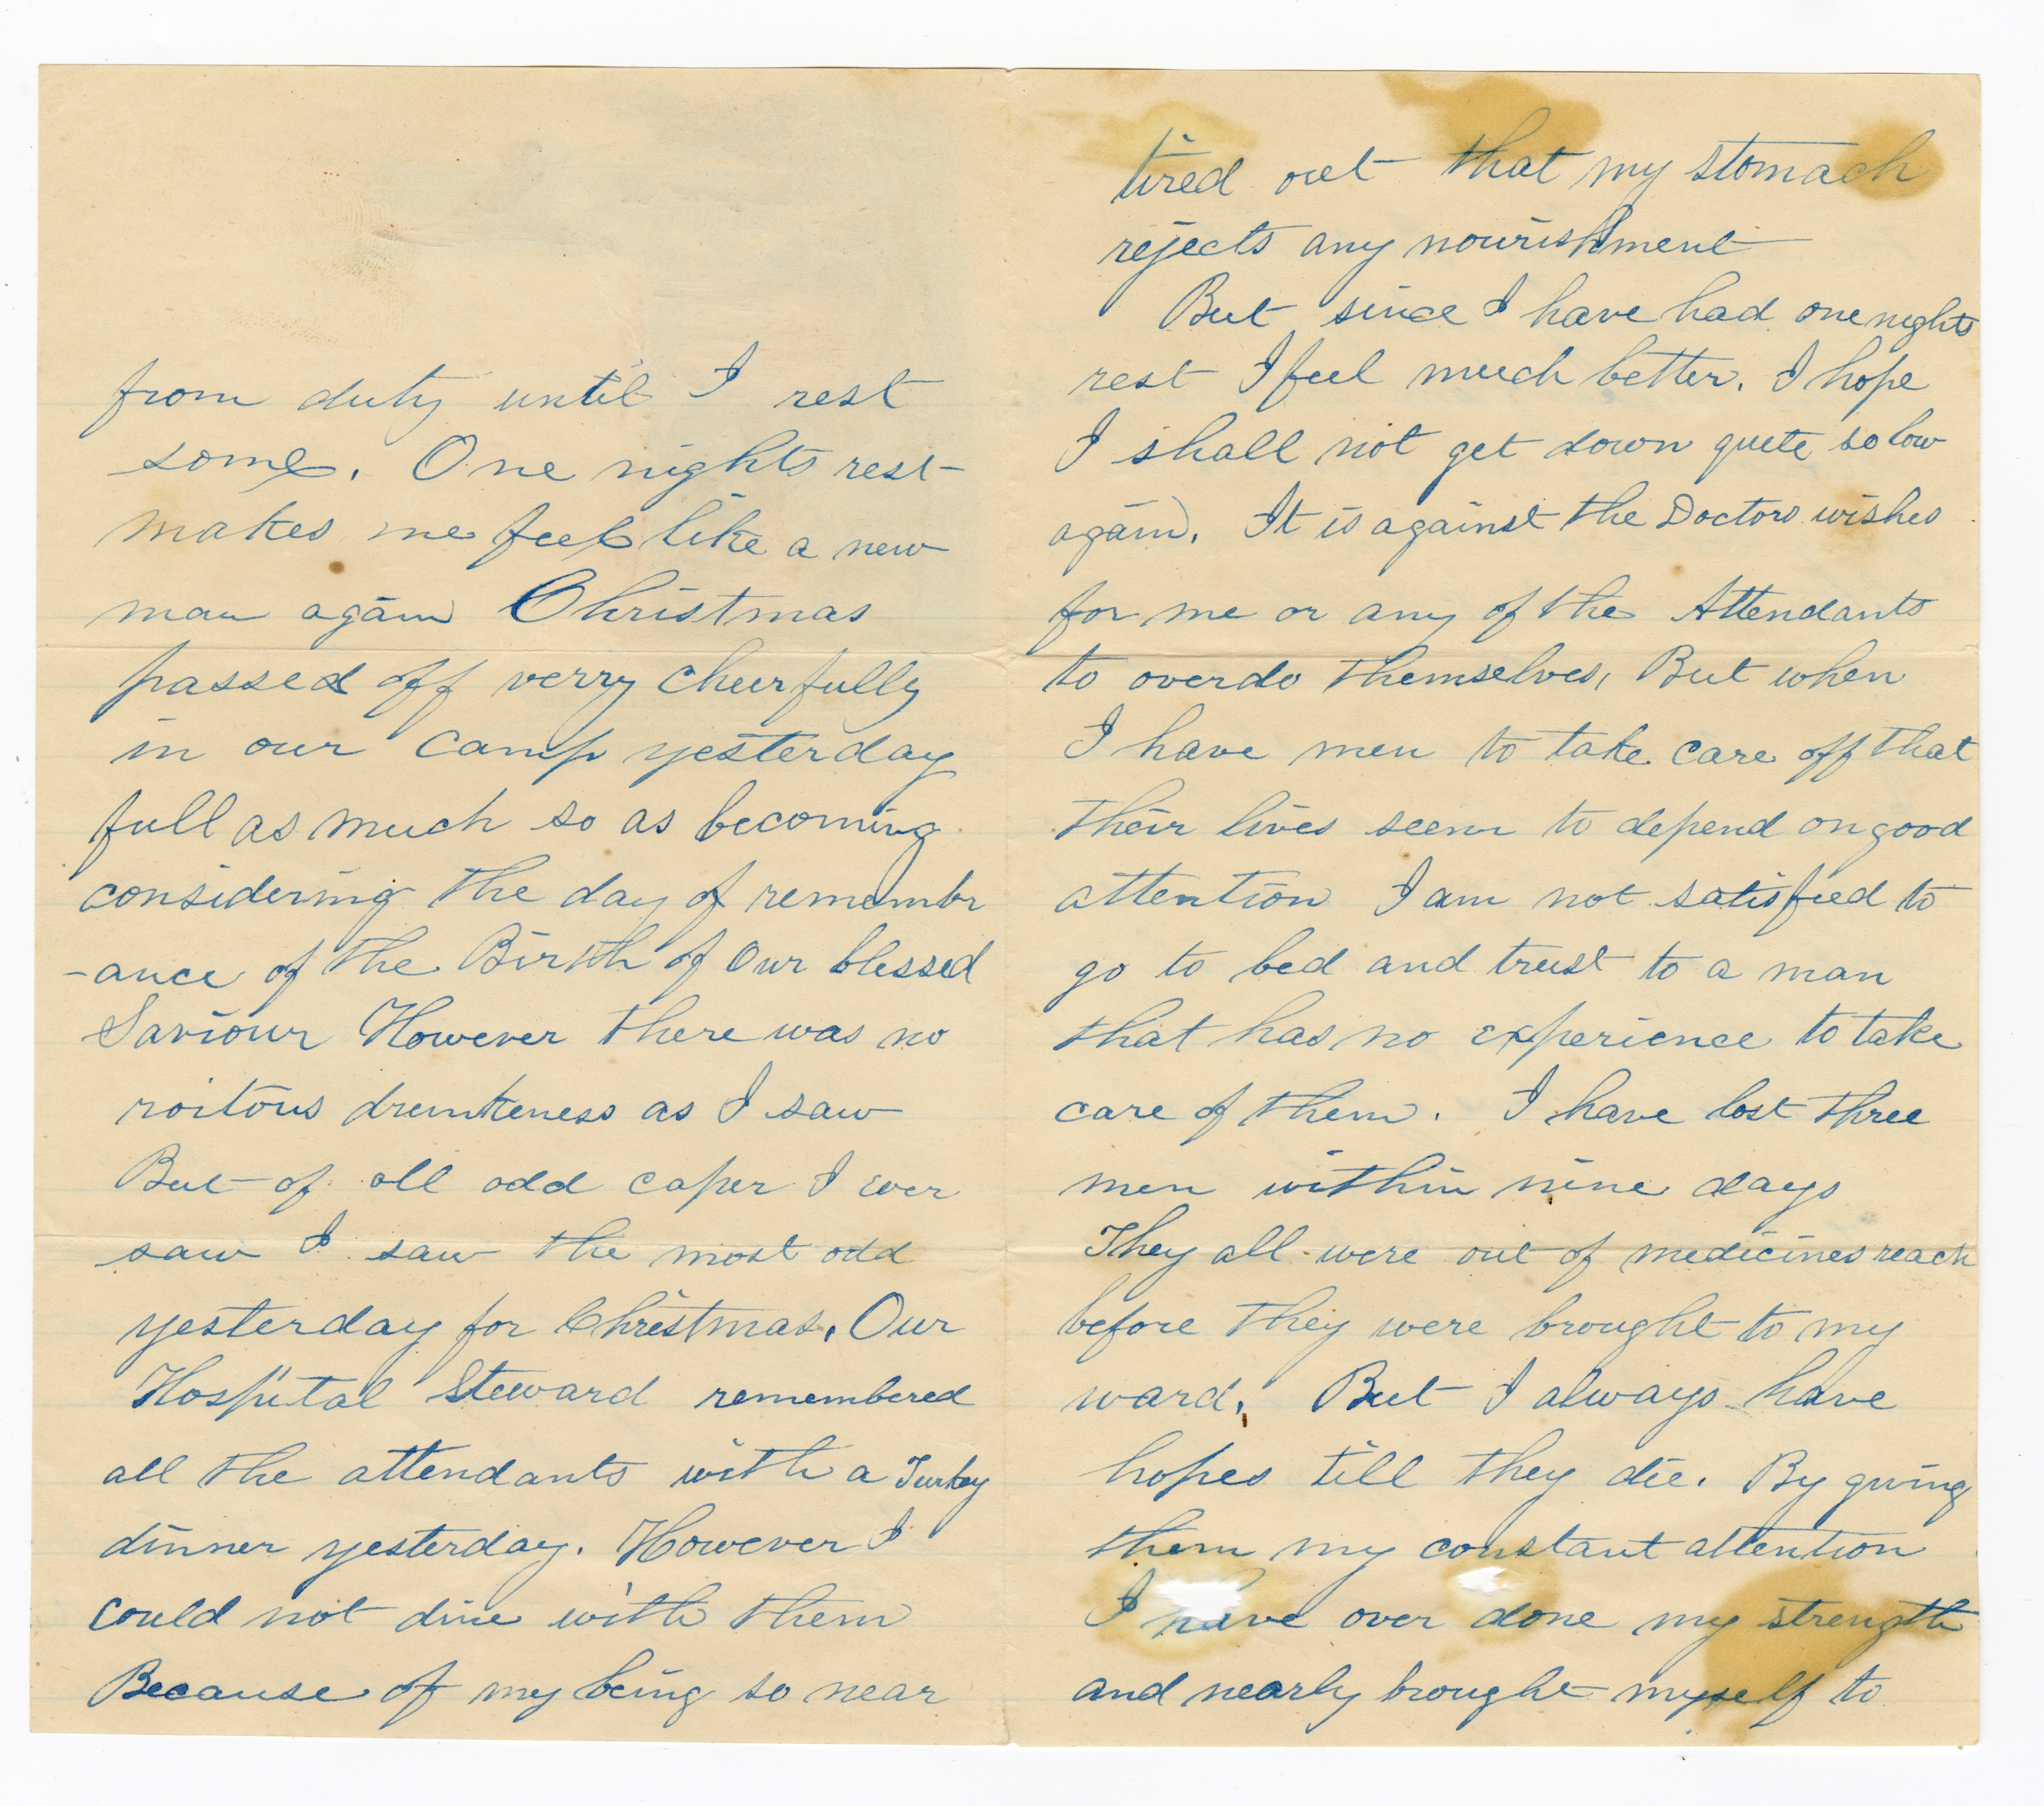 from duty until I rest
some. One nights rest
makes me feel like a new
man again Christmas
passed off verry cheerfully
in our camp yesterday
full as much so as becoming
considering the day of remembr
-ance of the Birth of Our blessed
Saviour However there was no
roitous drunkeness as I saw
But of all odd caper I ever
saw I saw the most odd
yesterday for Christmas. Our
Hospital Steward remembered
all the attendants with a Turkey
dinner yesterday. However I
could not dine with them
Because of my being so near
tired out that my stomach
rejects any nourishment
But since I have had one nights
rest I feel much better. I hope
I shall not get down quite so low
again. It is against the Doctors wishes
for me or any of the Attendants
to overdo themselves, But when
I have men to take care off that
their lives seem to depend on good
attention I am not satisfied to
go to bed and trust to a man
that has no experience to take
care of them. I have lost three
men within nine days
They all were out of medicines reach
before they were brought to my
ward. But I always have
hopes till they die. By giving
them my constant attention
I have over done my strength
and nearly brought myself to